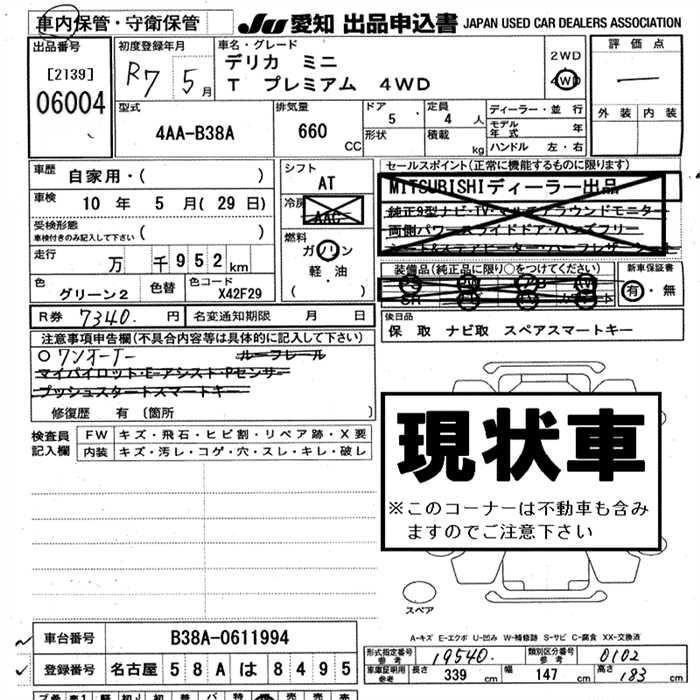 車内保管・守衛保管
JU 愛知 出品申込書 JAPAN USED CAR DEALERS ASSOCIATION
出品番号
[2139]
06004
初度登録年月
R7 5 月
車名・グレード
デリカ ミニ
T プレミアム 4WD
2WD
4WD
評価点
外装 内装
型式
4AA-B38A
排気量
660
CC
ドア
5
形状
定員
4 人
積載
kg
ディーラー・並行
モデル年式 年
ハンドル 左・右
車歴
自家用・( )
車検
10 年 5 月 (29 日)
受検形態
車検付きのみ記入して下さい ( )
走行
万 千 952 km
色
グリーン2
色替
色コード
X42F29
シフト
AT
冷房
AAC
燃料
ガソリン
軽・油
( )
セールスポイント(正常に機能するものに限ります)
MITSUBISHIディーラー出品
純正9型ナビ・TV・マルチアラウンドモニター
両側パワースライドドア・ハンズフリー
装備品(純正品に限り○をつけてください)
新車保証書
有・無
R券 7340. 円
名変通知期限 月 日
後日品
保 取 ナビ取 スペアスマートキー
注意事項申告欄(不具合内容等は具体的に記入して下さい)
ワンオーナー ルーフレール
マイパイロット・E-アシスト・Pセンサ
プッシュスタートスマートキー
修復歴 有 (箇所 )
検査員記入欄
FW キズ・飛石・ヒビ割・リペア跡・X要
内装 キズ・汚レ・コゲ・穴・スレ・キレ・破レ
現状車
※このコーナーは不動車も含み
ますのでご注意下さい
スペア
A-キズ E-エクボ U-凹み W-補修跡 S-サビ C-腐食 XX-交換済
車台番号
B38A-0611994
登録番号
名古屋 58A は 8495
形式指定番号 参考 19540.
類別区分番号 参考 0102
車庫証明用 参考
長さ 339 cm
幅 147 cm
高さ 183 cm